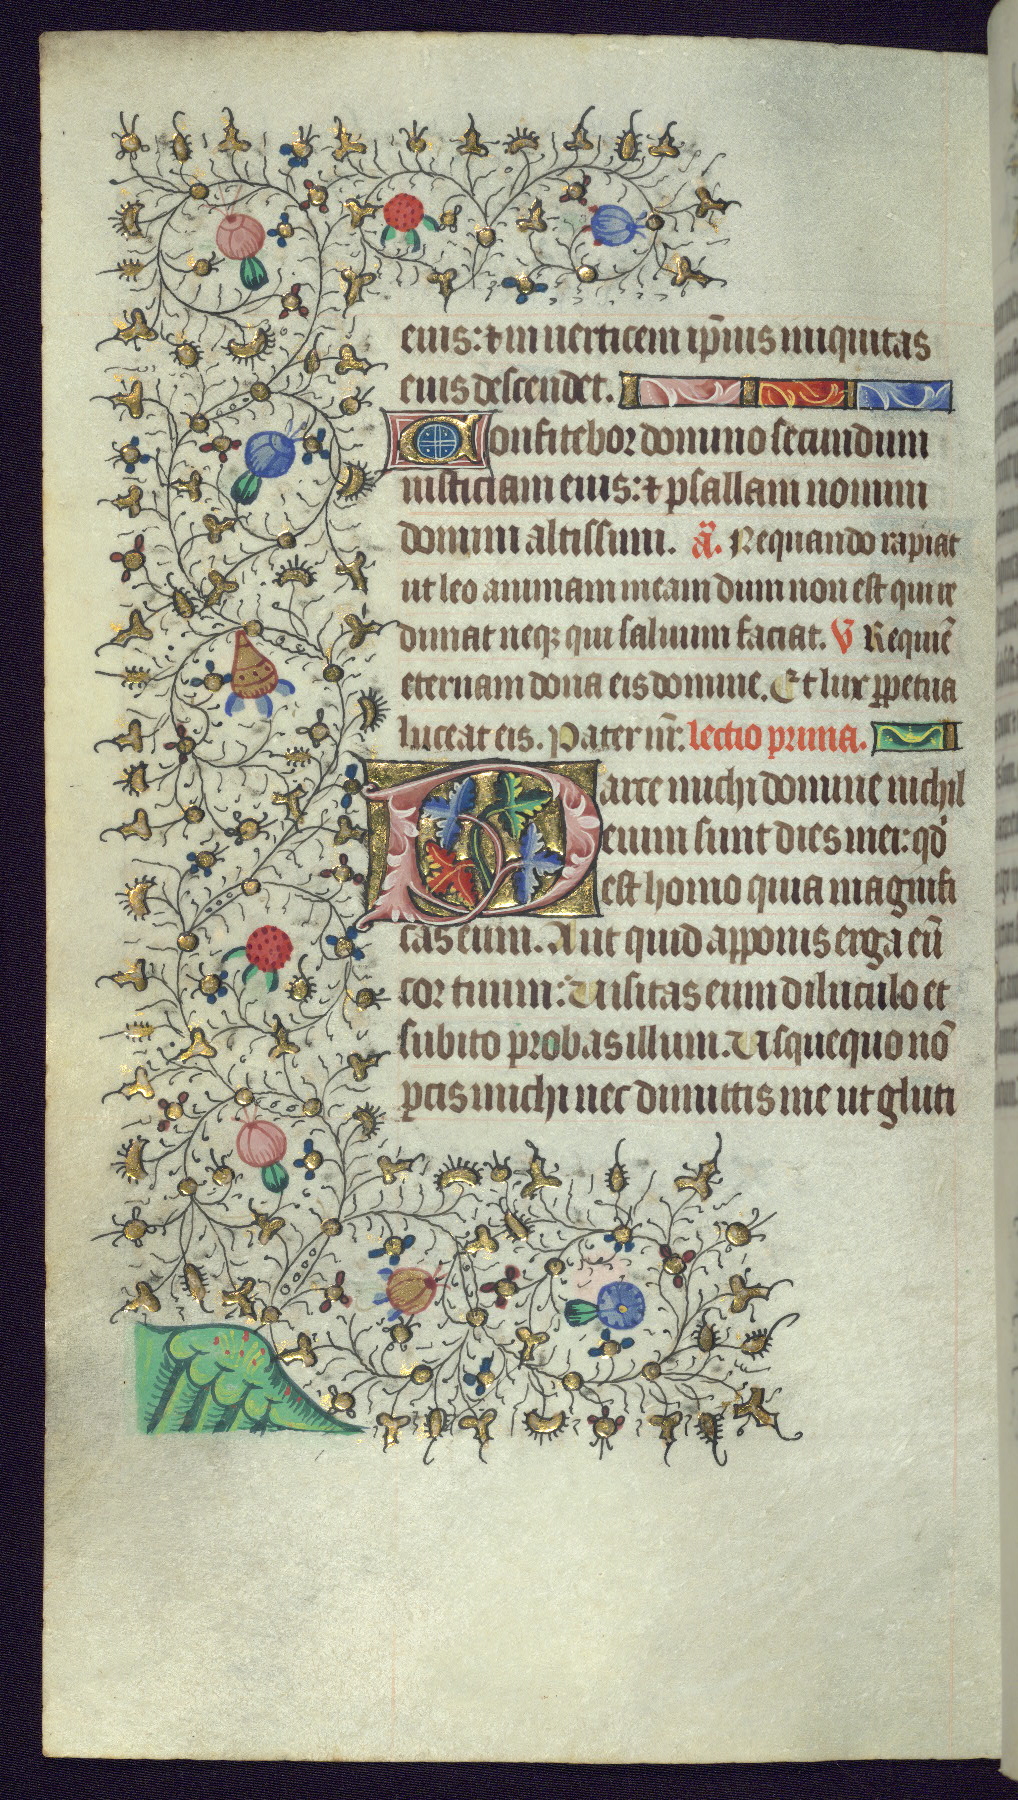 eius: ⁊ in uerticem ip̄ius iniquitas
eius descendet.
Confitebor domino secundum
iusticiam eius: ⁊ psallam nomini
domini altissimi. an̄. Nequando rapiat
ut leo animam meam dum non est qui re
dimat neqꝫ qui saluum faciat. V Requiē
eternam dona eis domine. Et lux ꝑpetua
luceat eis. Pater nr̄. lectio prima.
Parce michi domine nichil
enim sunt dies mei: qd̓
est homo quia magnifi
cas eum. Aut quid apponis erga eū
cor tuum: Uisitas eum diluculo et
subito probas illum. Usquequo nō
ꝑcis michi nec dimittis me ut gluti